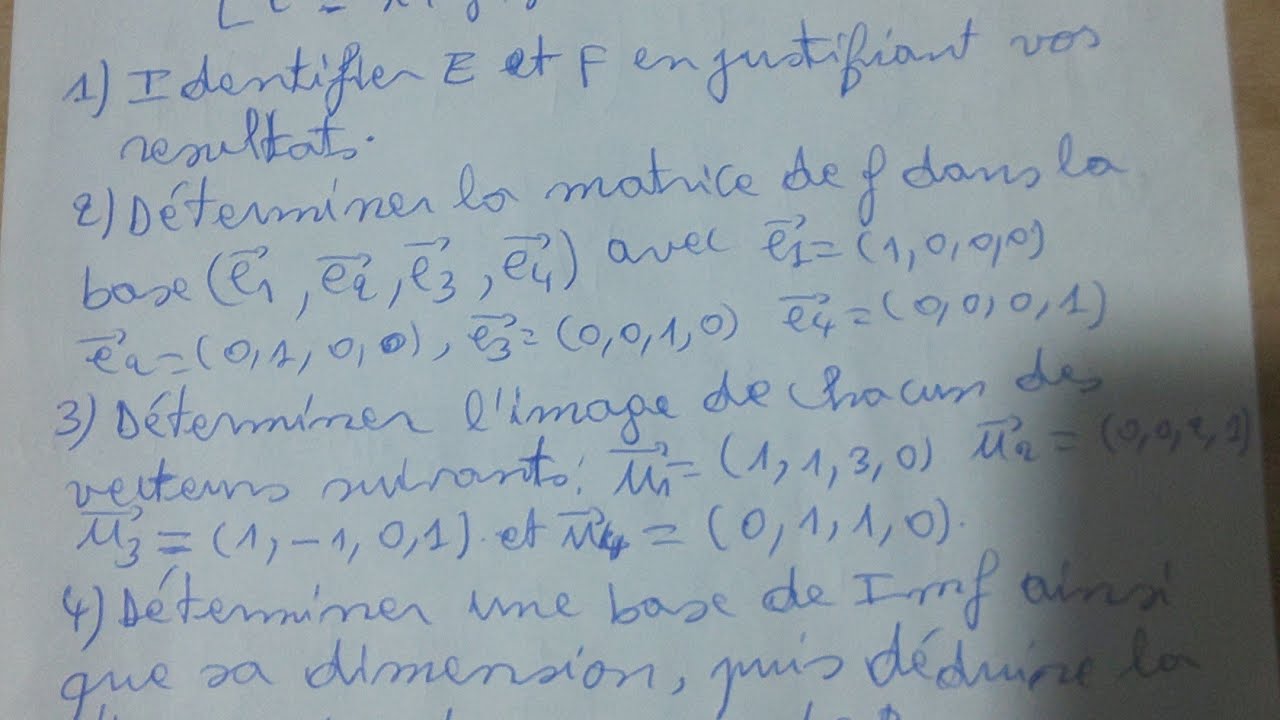 1) Identifier E et F en justifiant vos
resultats.
2) Déterminer la matrice de f dans la
base (e⃗1, e⃗2, e⃗3, e⃗4) avec e⃗1 = (1,0,0,0)
e⃗2 = (0,1,0,0), e⃗3 = (0,0,1,0) e⃗4 = (0,0,0,1)
3) Déterminer l'image de chacun des
vecteurs suivants: u⃗1 = (1,1,3,0) u⃗2 = (0,0,2,1)
u⃗3 = (1,-1,0,1). et u⃗4 = (0,1,1,0).
4) Déterminer une base de Imf ainsi
que sa dimension, puis déduire la